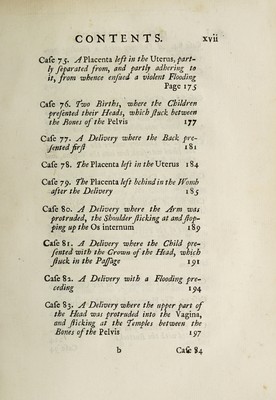 CONTENTS. xvii
Caſe 75. A Placenta left in the Uterus, part-
ly ſeparated from, and partly adhering to
it, from whence enſued a violent Flooding
Page 175
Caſe 76. Two Births, where the Children
preſented their Heads, which ſtuck between
the Bones of the Pelvis 177
Caſe 77. A Delivery where the Back pre-
ſented firſt 181
Caſe 78. The Placenta left in the Uterus 184
Caſe 79. The Placenta left behind in the Womb
after the Delivery 185
Caſe 80. A Delivery where the Arm was
protruded, the Shoulder ſticking at and ſtop-
ping up the Os internum 189
Caſe 81. A Delivery where the Child pre-
ſented with the Crown of the Head, which
ſtuck in the Paſſage 191
Caſe 82. A Delivery with a Flooding pre-
ceding 194
Caſe 83. A Delivery where the upper part of
the Head was protruded into the Vagina,
and ſticking at the Temples between the
Bones of the Pelvis 197
b Caſe 84